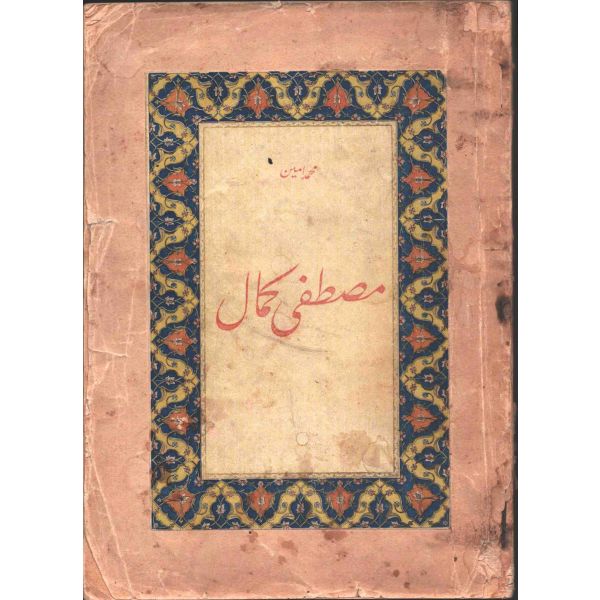 محمد امین
مصطفى كمال